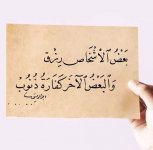 بَعْضُ الْأَشْخَاصِ رِزْقٌ
وَالْبَعْضُ الْآخَرُ كَفَّارَةُ ذُنُوبٌ